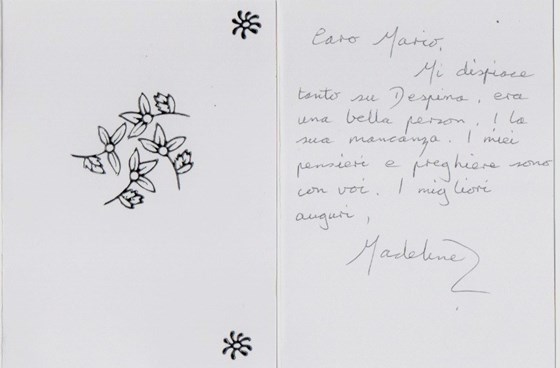 Caro Mario,
Mi dispiace
tanto su Despina, era
una bella person. I la
sua mancanza. I miei
pensieri e preghiere sono
con voi. I migliori
auguri,
Madeline